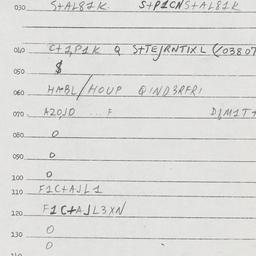 030 S+AL81K S+P1CNS+AL81K
040 C+1P1K Q S+TEJRNTIXL (/03807
050 $
060 HMBL/HOUP QIND3RFRI
070 AZOJO ... F DJM1T+
080 O
090 O
100 O
110 F1C+AJL1
120 F1C+AJL3XN
130 O
O